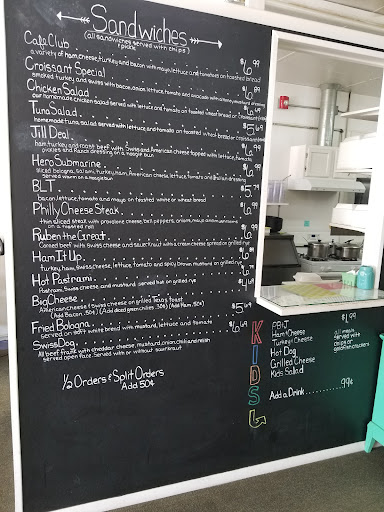 Sandwiches
(all sandwiches served with chips)
& pickle
Cafe Club $6.99
a variety of ham, cheese, turkey and bacon with mayo, lettuce and tomatoes on toasted bread
Croissant Special $6.99
smoked turkey and swiss with bacon, onion, lettuce, tomato and avocado with
Chicken Salad
our homemade chicken salad served with lettuce and tomato on toasted wheat bread or croissant
Tuna Salad $5.69
homemade tuna salad served with lettuce and tomato on toasted wheat bread or croissant
Jill Deal $6.99
ham, turkey and roast beef with Swiss and American cheese topped with lettuce, tomato,
pickles and Ranch dressing on a hoagie bun
Hero Submarine $6.99
sliced bologna, salami, turkey, ham, American cheese, lettuce, tomato and Italian dressing
served warm on a hoagie bun
BLT $5.79
bacon, lettuce, tomato and mayo on toasted white or wheat bread
Philly Cheese Steak $6.99
thin sliced steak with provolone cheese, bell peppers, onions, mayo
on a toasted roll
Ruben the Great $6.99
Corned beef with Swiss cheese and sauer kraut with a cream spread on grilled rye
Ham It Up
turkey, ham, Swiss cheese, lettuce, tomato and spicy brown mustard on grilled rye
Hot Pastrami
Pastrami, Swiss cheese, and mustard served hot on grilled rye
Big Cheese $4.69
American cheese & Swiss cheese on grilled Texas toast
(Add Bacon .50¢) (Add sliced green chilies .50¢) (Add Ham .50¢)
Fried Bologna $5.69
served on soft white bread with mustard, lettuce and tomato
Swiss Dog $6.69
All beef frank with cheddar cheese, mustard, onion, chili and relish
served open face. Served with or without sauerkraut
1/2 Orders & Split Orders
Add 50¢
KIDS
PB&J $1.99
Ham & Cheese
Turkey & Cheese
Hot Dog
Grilled Cheese
Kids Salad
all meals
served with
chips or
goldfish crackers
Add a Drink 99¢